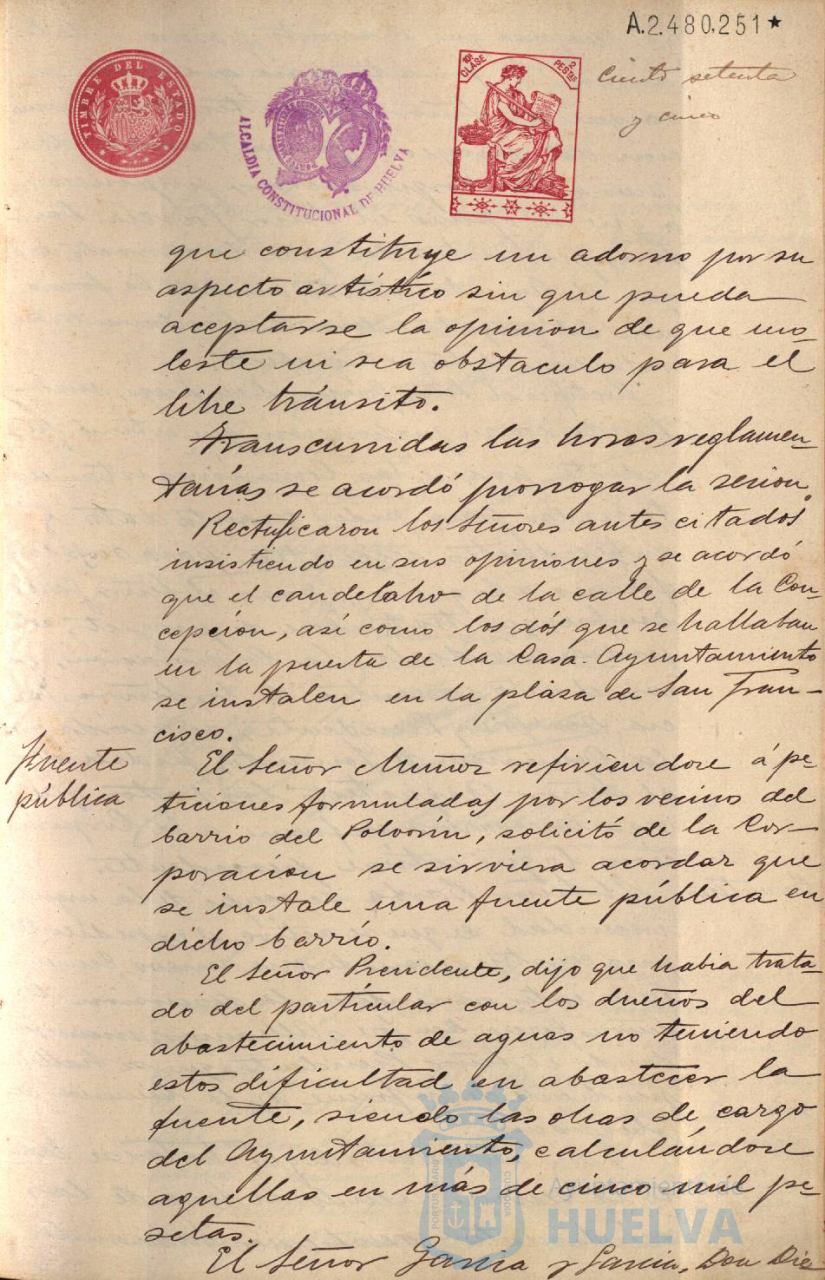 A.2.480.251*
TIMBRE DEL ESTADO
ALCALDIA CONSTITUCIONAL DE HUELVA
10ª CLASE
2 PESTAS
Ciento setenta
y cinco
que constituye un adorno por su
aspecto artístico sin que pueda
aceptarse la opinion de que mo-
leste ni sea obstaculo para el
libre tránsito.
Transcurridas las horas reglamen-
tarias se acordó prorrogar la sesion.
Rectificaron los Señores antes citados
insistiendo en sus opiniones y se acordó
que el candelabro de la calle de la Con-
cepción, así como los dós que se hallaban
en la puerta de la Casa-Ayuntamiento
se instalen en la plaza de San Fran-
cisco.
Fuente
pública
El Señor Muñoz refiriendose á pe-
ticiones formuladas por los vecinos del
barrio del Polvorín, solicitó de la Cor-
poración se sirviera acordar que
se instale una fuente pública en
dicho barrio.
El Señor Presidente, dijo que habia trata-
do del particular con los dueños del
abastecimiento de aguas no teniendo
estos dificultad en abastecer la
fuente, siendo las obras de cargo
del Ayuntamiento, calculándose
aquellas en más de cinco mil pe-
setas.
El Señor Garcia y Garcia, Don Die
Ayuntamiento de
HUELVA